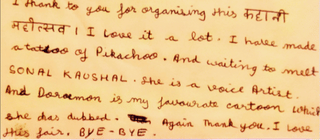 I thank to you for organizing this कहानी
महोत्सव । I Love it a lot. I have made
a tattoo of Pikachoo. And waiting to meet
SONAL KAUSHAL. She is a voice Artist.
And Doraemon is my favourate cartoon which
she has dubbed. Again Thank you. I Love
this fair. BYE-BYE.